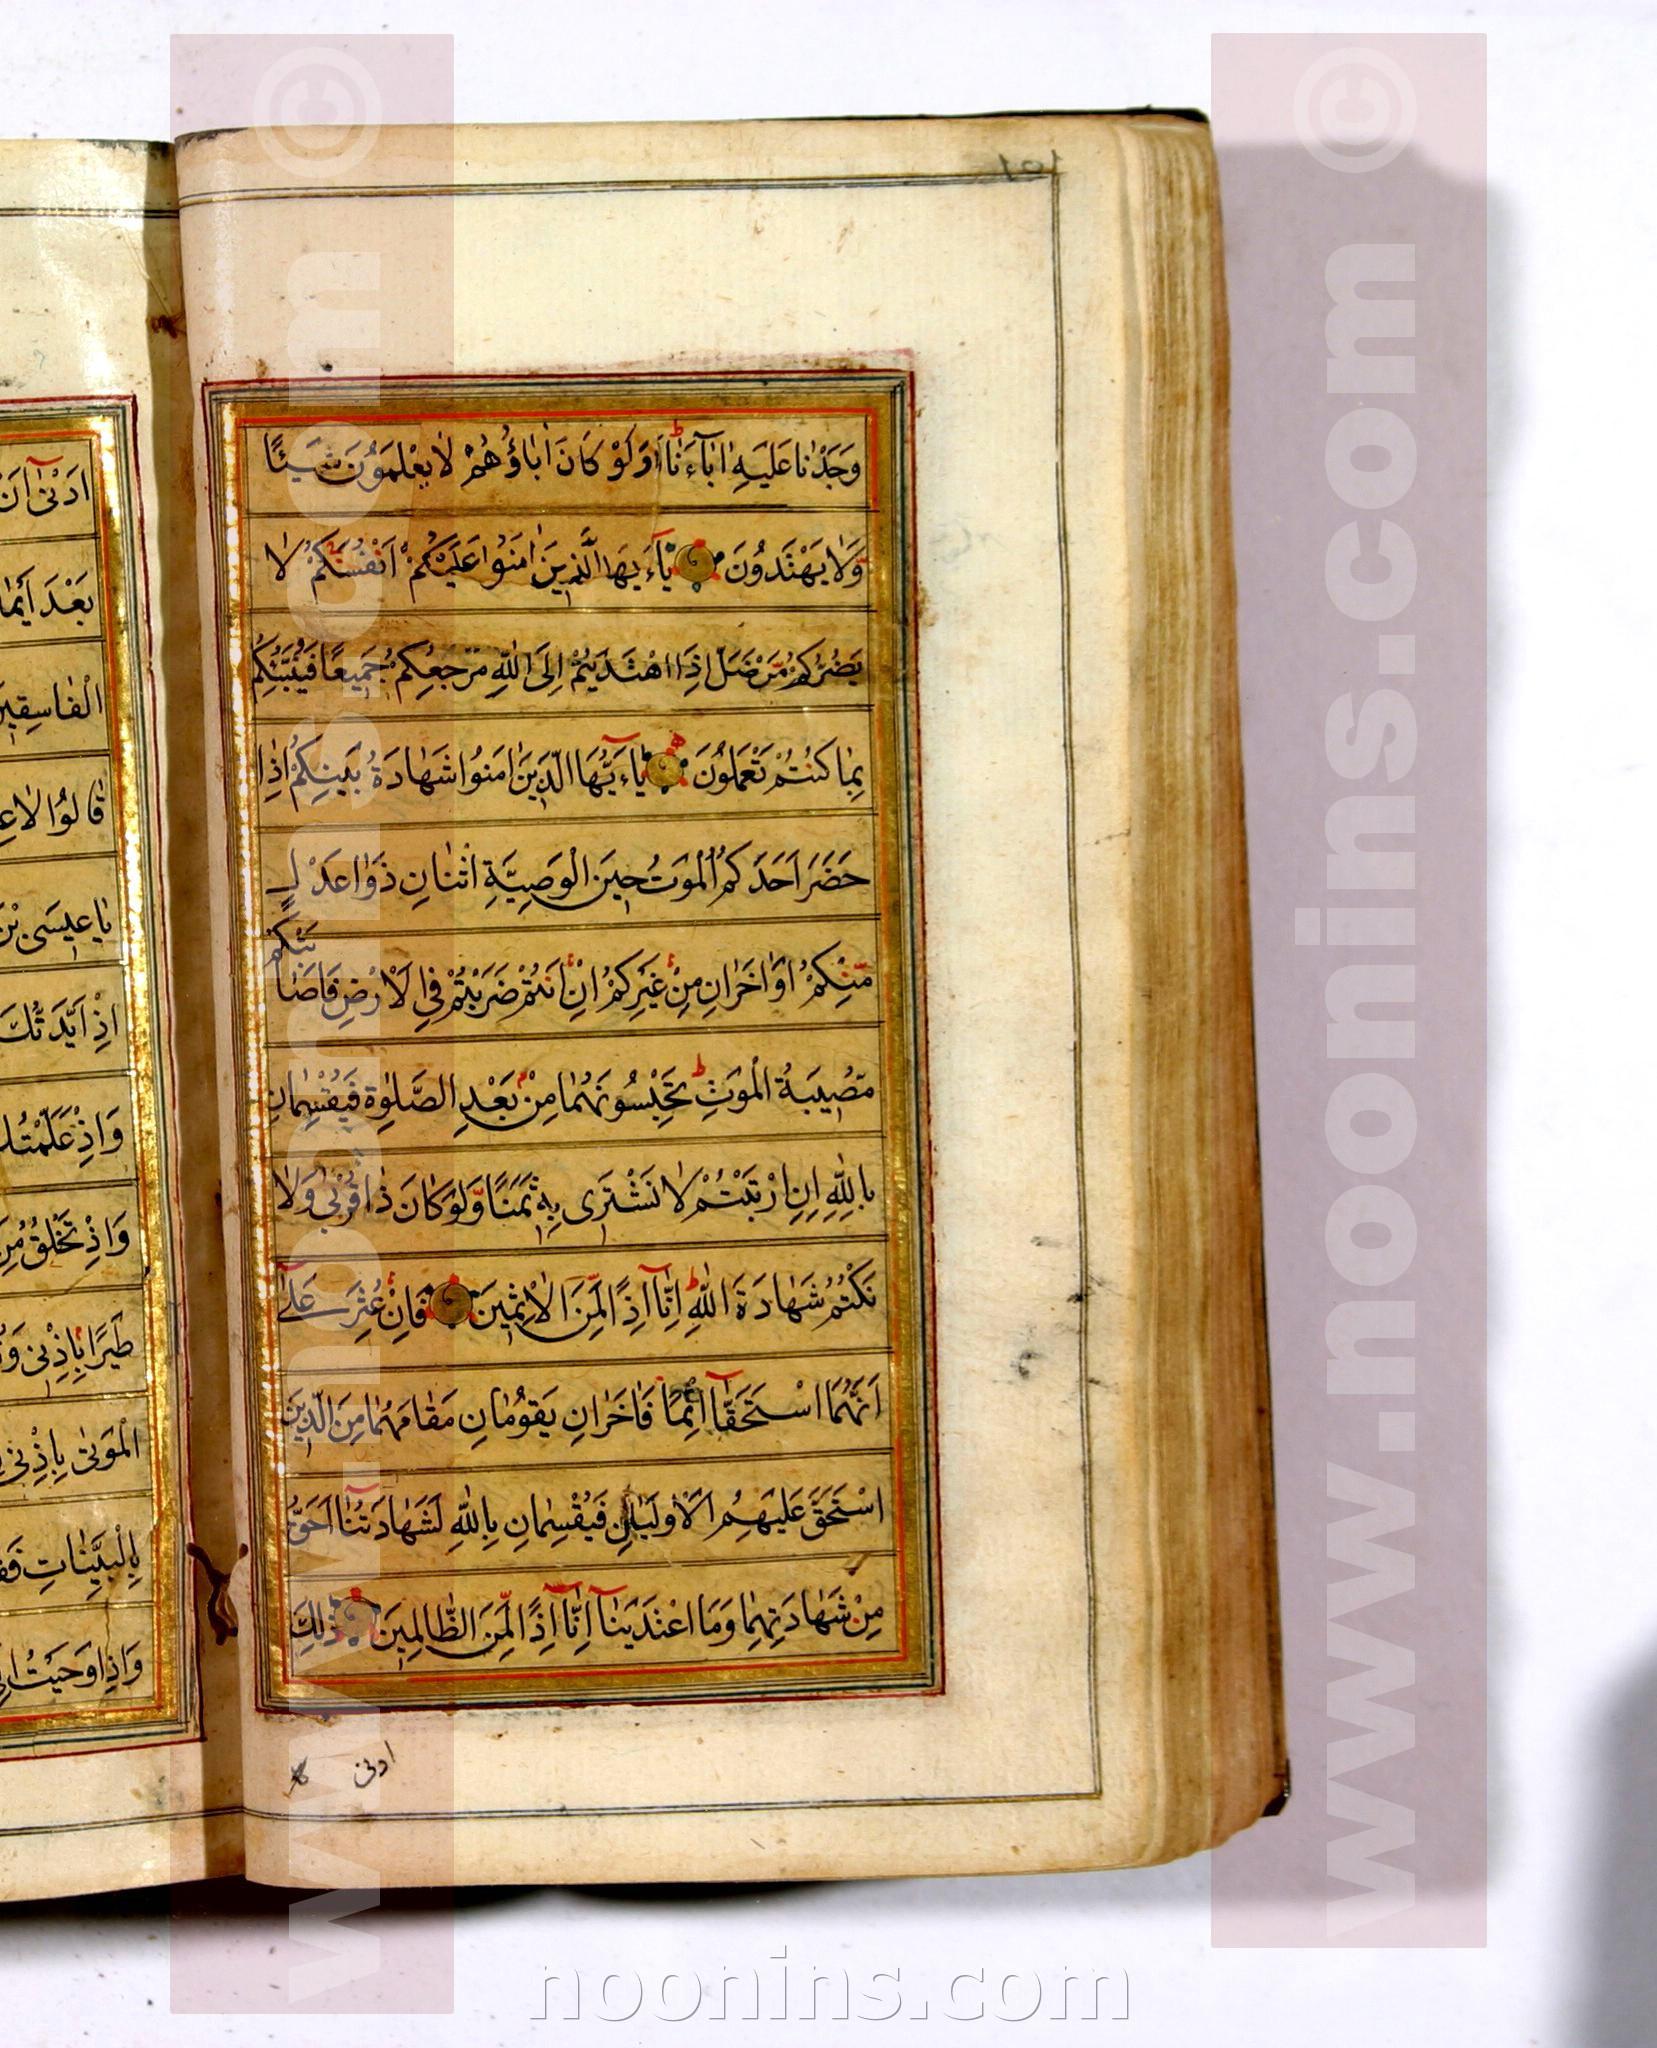 ١٥١
وَجَدْنا عَلَيهِ اٰبآءَنٰا اَوَلَوْ كٰانَ اٰباؤُهُمْ لا يَعْلمَوُنَ شَيئًا
وَلا يَهْتَدُونَ يآءَيهَا الَّذينَ اٰمَنُوا عَلَيْكُمْ اَنْفُسَكُمْ لا
يَضُرُّكُمْ مَنْ ضَلَّ اِذَا اهْتَدَيْتُمْ اِلَى اللهِ مَرْجِعُكُمْ جَميعًا فَيُنَبِّئُكُمْ
بِمٰا كُنْتُمْ تَعْمَلوُنَ يآءَيُّهَا الَّذينَ اٰمَنوُا شَهٰادَةُ بَيْنِكُمْ اِذٰا
حَضَرَ اَحَدَكُمُ الْمَوْتُ حينَ الْوَصِيَّةِ اثْنٰانِ ذَوٰا عَدْلٍ
مِنْكُمْ اَوْ اٰخَرٰانِ مِنْ غَيْرِكُمْ اِنْ اَنْتُمْ ضَرَبْتُمْ فِي الْاَرْضِ فَاَصٰابَتْكُمْ
مُصيبَةُ الْمَوْتِ تَحْبِسُونَهُمٰا مِنْ بَعْدِ الصَّلوٰةِ فَيُقْسِمٰانِ
بِاللهِ اِنِ ارْتَبْتُمْ لا نَشْتَرى بِهِ ثَمَنًا وَلَوْ كٰانَ ذٰا قُرْبىٰ وَلا
نَكْتُمُ شَهٰادَةَ اللهِ اِنّآ اِذًا لَمِنَ الْاٰثِمينَ فَاِنْ عُثِرَ عَلىٰ
اَنَّهُمَا اسْتَحَقّآ اِثْمًا فَاٰخَرٰانِ يَقوُمٰانِ مَقٰامَهُمٰا مِنَ الَّذينَ
اسْتَحَقَّ عَلَيهِمُ الْاَوْلَيٰانِ فَيُقْسِمٰانِ بِاللهِ لَشَهٰادَتُنٰا اَحَقُّ
مِنْ شَهٰادَتِهِمٰا وَمَا اعْتَدَيْنآ اِنّآ اِذًا لَمِنَ الظّٰالِمينَ ذٰلِكَ
ادنى
ادَْنىٰ اَنْ
بَعْدَ اَيْمٰا
الْفٰاسِقينَ
قٰالُوا لا عِ
يٰا عيسَى بْنَ
اِذْ اَيَّدْتُكَ
وَاِذْ عَلَّمْتُكَ
وَاِذْ تَخْلُقُ مِنَ
طَيْرًا بِاِذْنى وَ
الْمَوْتىٰ بِاِذْنى
بِالْبَيِّنٰاتِ فَقٰ
وَاِذْ اَوْحَيْتُ اِلَى
www.noonins.com ©
www.noonins.com ©
noonins.com